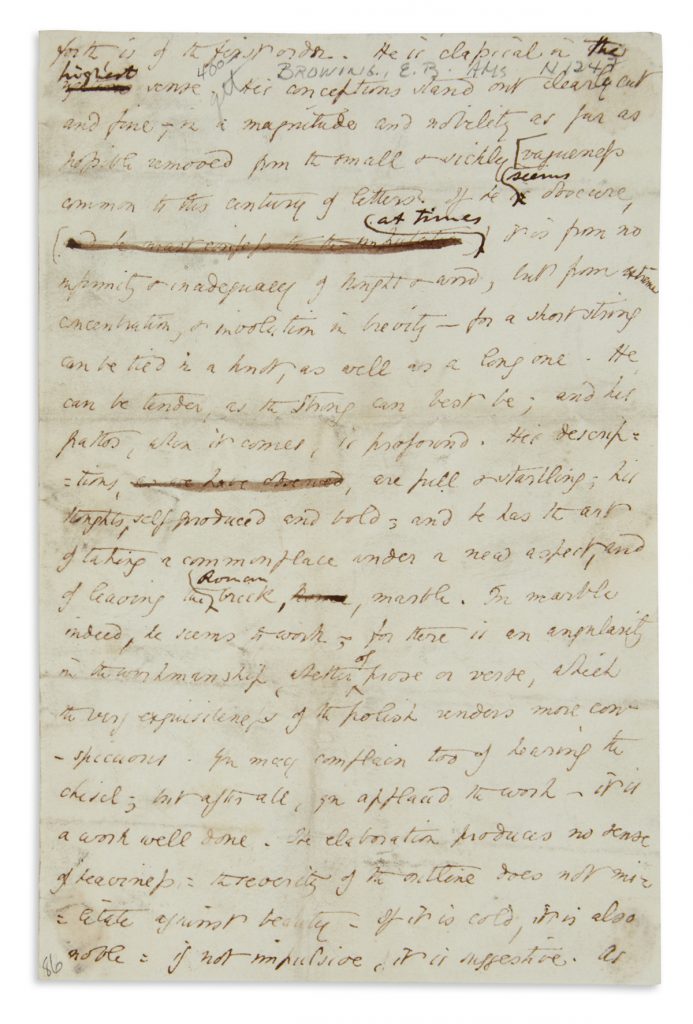 forth is of the first order. He is classical in the
highest sense. His conceptions stand out clearly cut
400
yet
BROWING, E.B. AMs N1247
and fine, in a magnitude and nobility as far as
possible removed from the small & sickly vagueness
common to this century of letters. If he seems obscure,
at times it is from no
infirmity & inadequacy of thought & word, but from extreme
concentration, & involution in brevity — for a short string
can be tied in a knot, as well as a long one. He
can be tender, as the strong can best be; and his
pathos, when it comes, is profound. His descrip=
=tions, as we have observed, are full & startling; his
thoughts, self produced and bold; and he has the art
of taking a commonplace under a new aspect, and
of leaving the Roman brick, marble. In marble
indeed, he seems to work; for there is an angularity
in the workmanship, whether of prose or verse, which
the very exquisiteness of the polish renders more con
-spicuous. You may complain too of hearing the
chisel; but after all, you applaud the work — it is
a work well done. The elaboration produces no sense
of heaviness = the severity of the outline does not mi=
=litate against beauty = If it is cold, it is also
noble = if not impulsive, it is suggestive. As
86